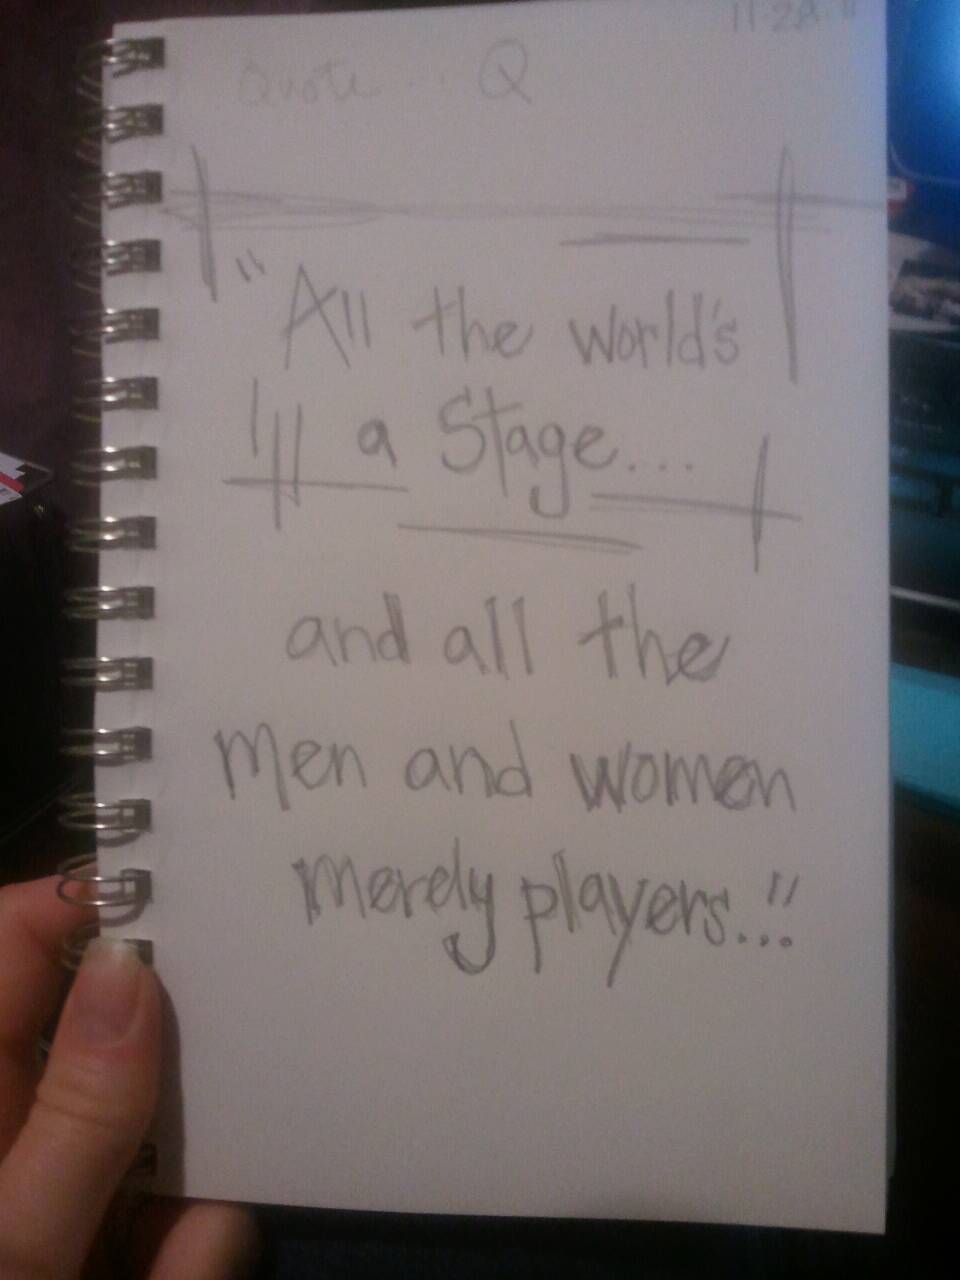 Quote... Q
"All the world's
a Stage...
and all the
men and women
merely players..."